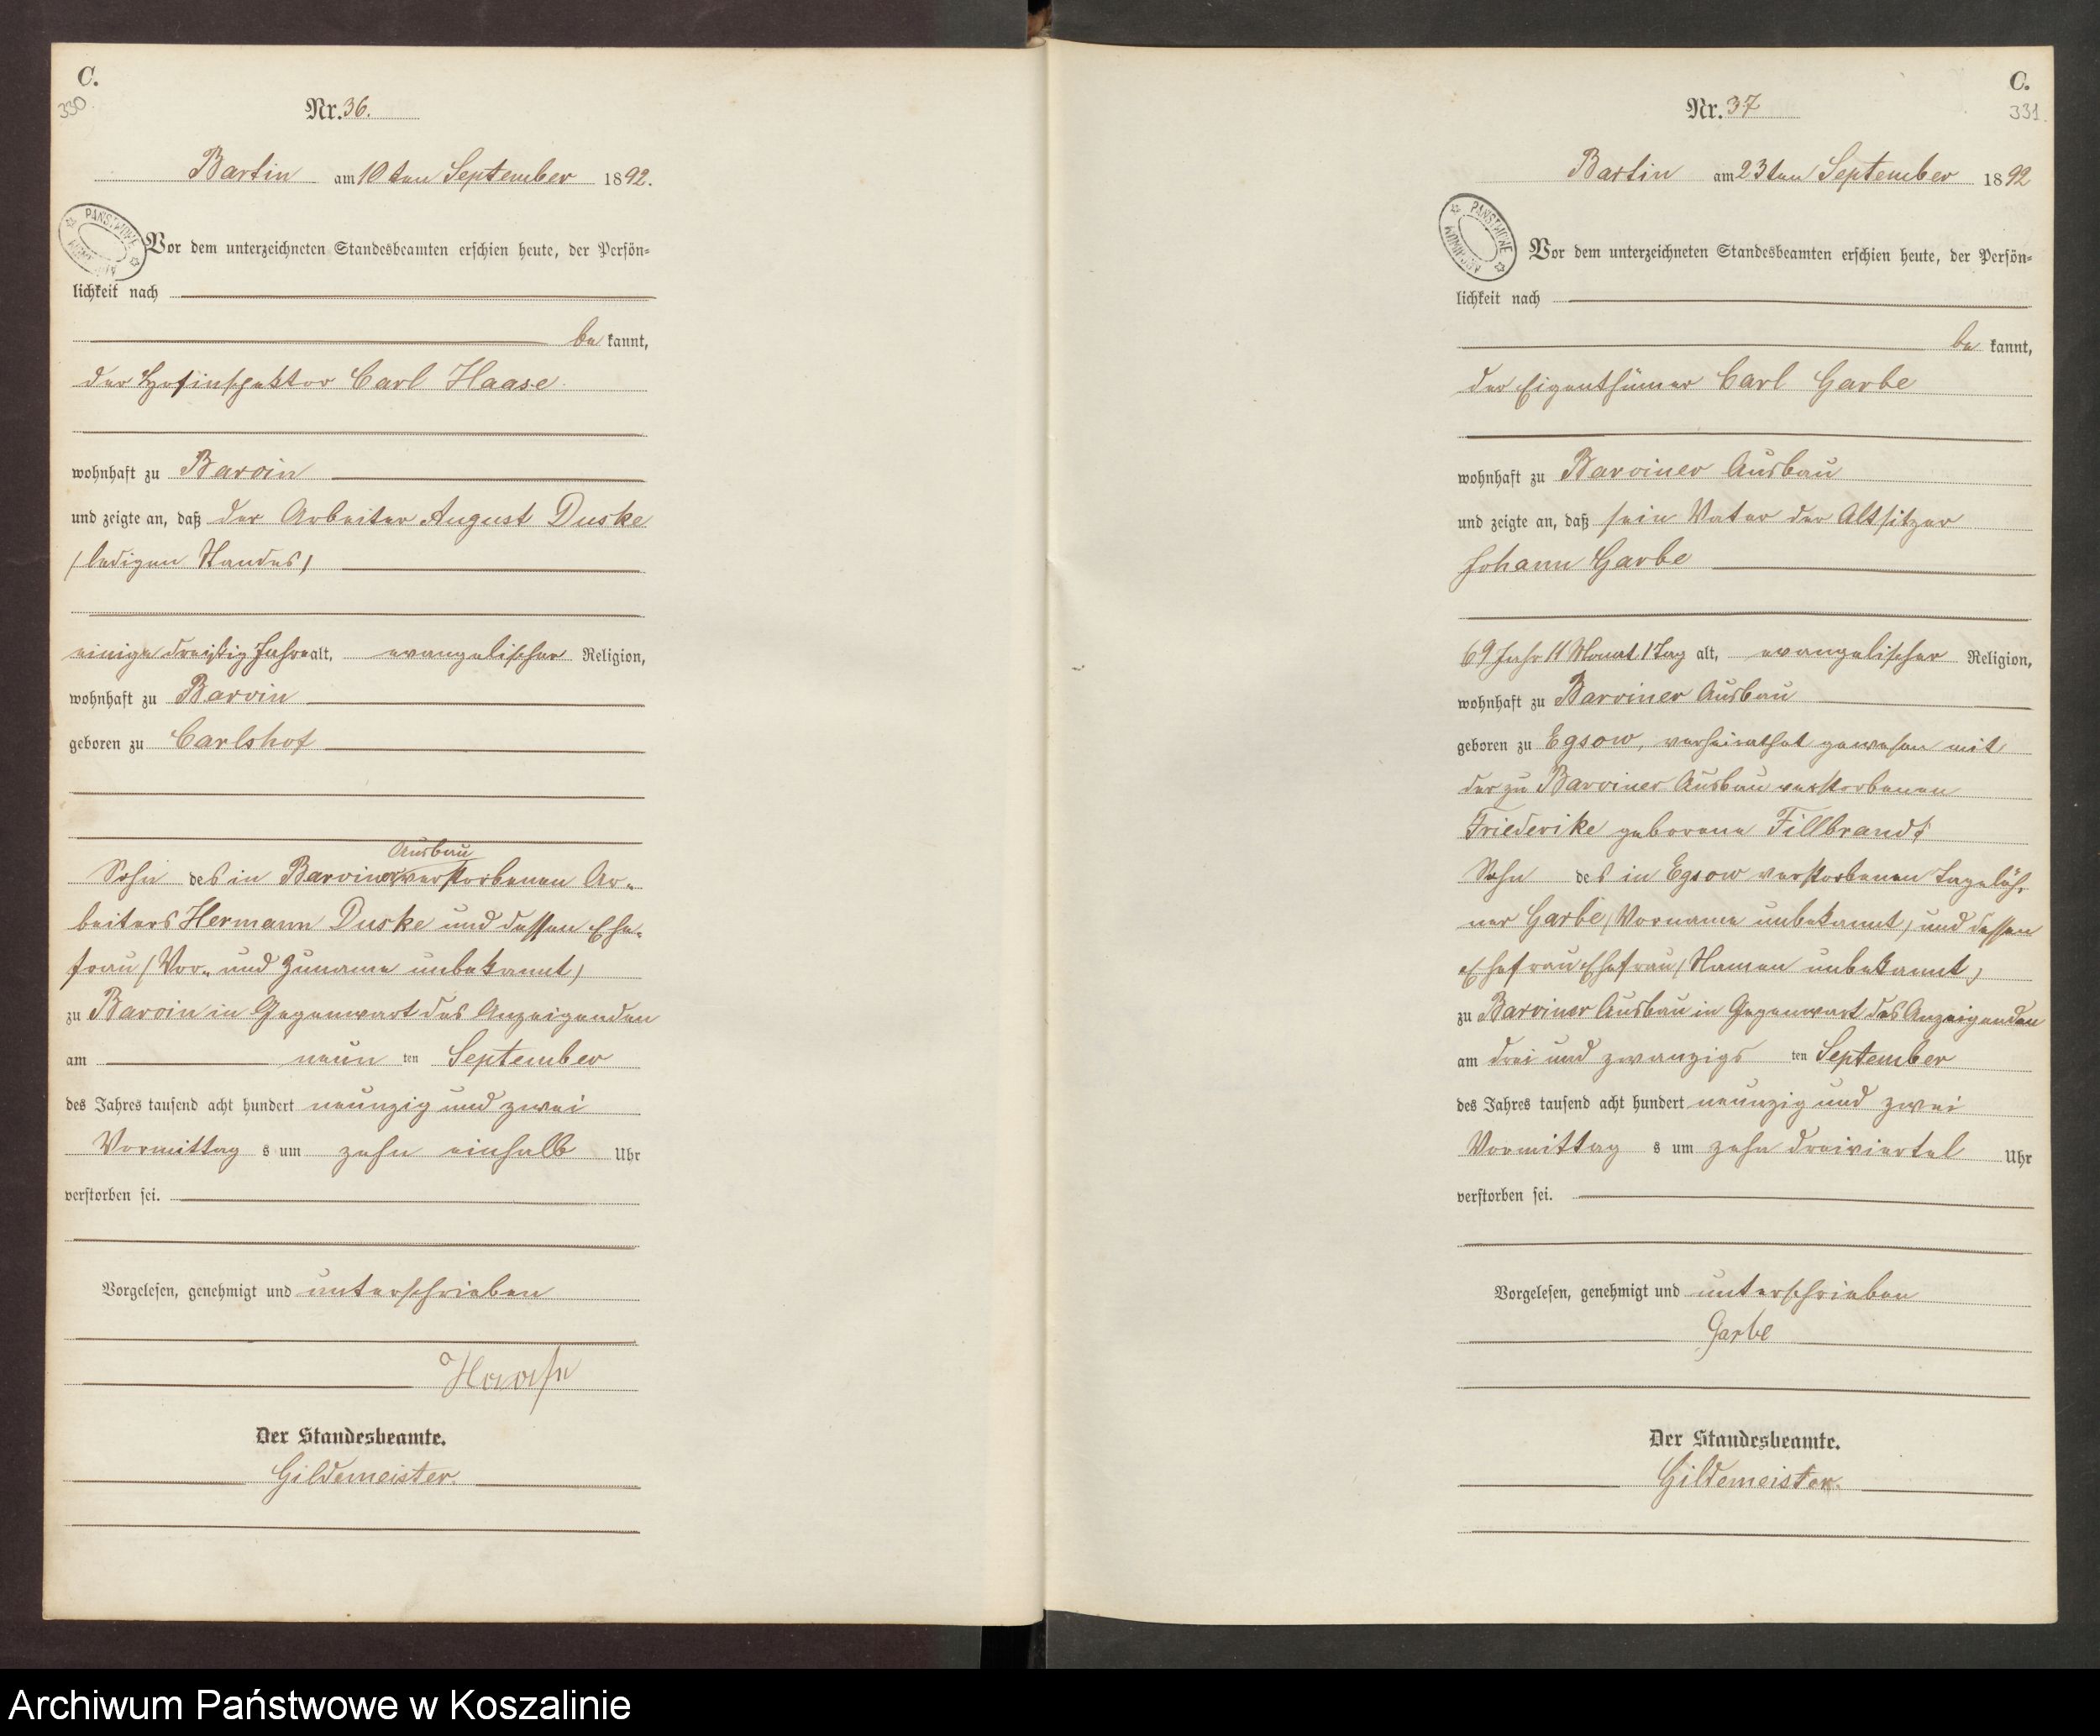 C.
330
Nr. 36.
Bartin am 10ten September 1892.
PAŃSTWOWE ARCHIWUM
Vor dem unterzeichneten Standesbeamten erschien heute, der Persön-
lichkeit nach
be kannt,
der Hofinspektor Carl Haase
wohnhaft zu Barvin
und zeigte an, daß der Arbeiter August Duske
(ledigen Standes)
einige dreißig Jahre alt, evangelischer Religion,
wohnhaft zu Barvin
geboren zu Carlshof
Ausbau
Sohn des in Barviner verstorbenen Ar-
beiters Hermann Duske und dessen Ehe-
frau (Vor- und Zuname unbekannt)
zu Barvin in Gegenwart des Anzeigenden
am neun ten September
des Jahres tausend acht hundert neunzig und zwei
Vormittag s um zehn einhalb Uhr
verstorben sei.
Vorgelesen, genehmigt und unterschrieben
Haase
Der Standesbeamte.
Gildemeister.
C.
331.
Nr. 37
Bartin am 23ten September 1892
PAŃSTWOWE ARCHIWUM
Vor dem unterzeichneten Standesbeamten erschien heute, der Persön-
lichkeit nach
be kannt,
der Eigenthümer Carl Garbe
wohnhaft zu Barviner Ausbau
und zeigte an, daß sein Vater der Altsitzer
Johann Garbe
69 Jahr 11 Monat 1 Tag alt, evangelischer Religion,
wohnhaft zu Barviner Ausbau
geboren zu Egsow, verheirathet gewesen mit
der zu Barviner Ausbau verstorbenen
Friederike geborene Fillbrandt
Sohn des in Egsow verstorbenen Tagelöh-
ner Garbe (Vorname unbekannt) und dessen
Ehefrau Ehefrau (Namen unbekannt)
zu Barviner Ausbau in Gegenwart des Anzeigenden
am drei und zwanzigs ten September
des Jahres tausend acht hundert neunzig und zwei
Vormittag s um zehn dreiviertel Uhr
verstorben sei.
Vorgelesen, genehmigt und unterschrieben
Garbe
Der Standesbeamte.
Gildemeister.
Archiwum Państwowe w Koszalinie